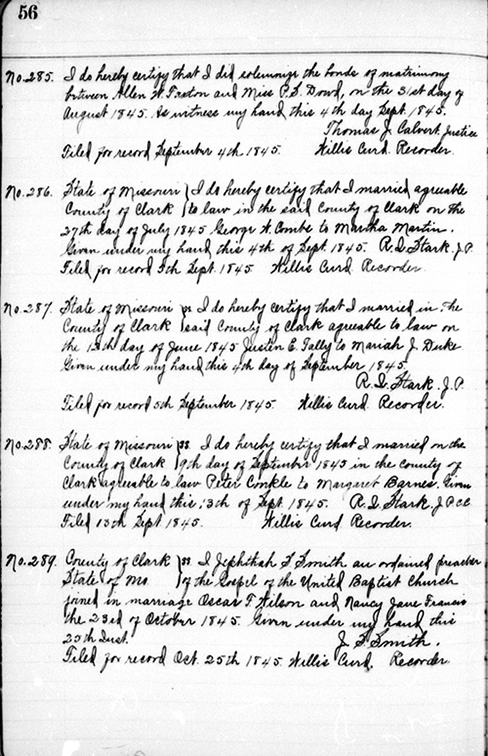 56
No. 285. I do hereby certify that I did solemnize the bonds of matrimony
between Allen W. Foxton and Miss P. S. Dowd, on the 31st day of
August 1845. As witness my hand this 4th day Sept. 1845.
Thomas J. Calvert, Justice
Filed for record September 4th 1845. Willis Curd. Recorder.
No. 286. State of Missouri } I do hereby certify that I married agreeable
County of Clark } to law in the said County of Clark on the
27th day of July 1845 George W. Combs to Martha Martin.
Given under my hand this 4th of Sept. 1845. R. I. Stark. J. P.
Filed for record 5th Sept. 1845 Willis Curd Recorder.
No. 287. State of Missouri ss I do hereby certify that I married in the
County of Clark } said County of Clark agreeable to law on
the 12th day of June 1845 Justin E. Tally to Mariah J. Duke
Given under my hand this 4th day of September 1845.
R. I. Stark. J. P.
Filed for record 5th September 1845. Willis Curd. Recorder.
No. 288. State of Missouri ss. I do hereby certify that I married on the
County of Clark } 9th day of September 1845 in the County of
Clark agreeable to law Peter Conkle to Margaret Barnes. Given
under my hand this 13th of Sept. 1845. R. I. Stark, J P CC
Filed 13th Sept 1845. Willis Curd Recorder.
No. 289. County of Clark } ss I Jephthah S Smith an ordained preacher
State of Mo. } of the Gospel of the United Baptist Church
joined in marriage Oscar F. Wilson and Nancy Jane Francis
the 23rd of October 1845. Given under my hand this
25th Inst. J. S Smith.
Filed for record Oct. 25th 1845. Willis Curd. Recorder.